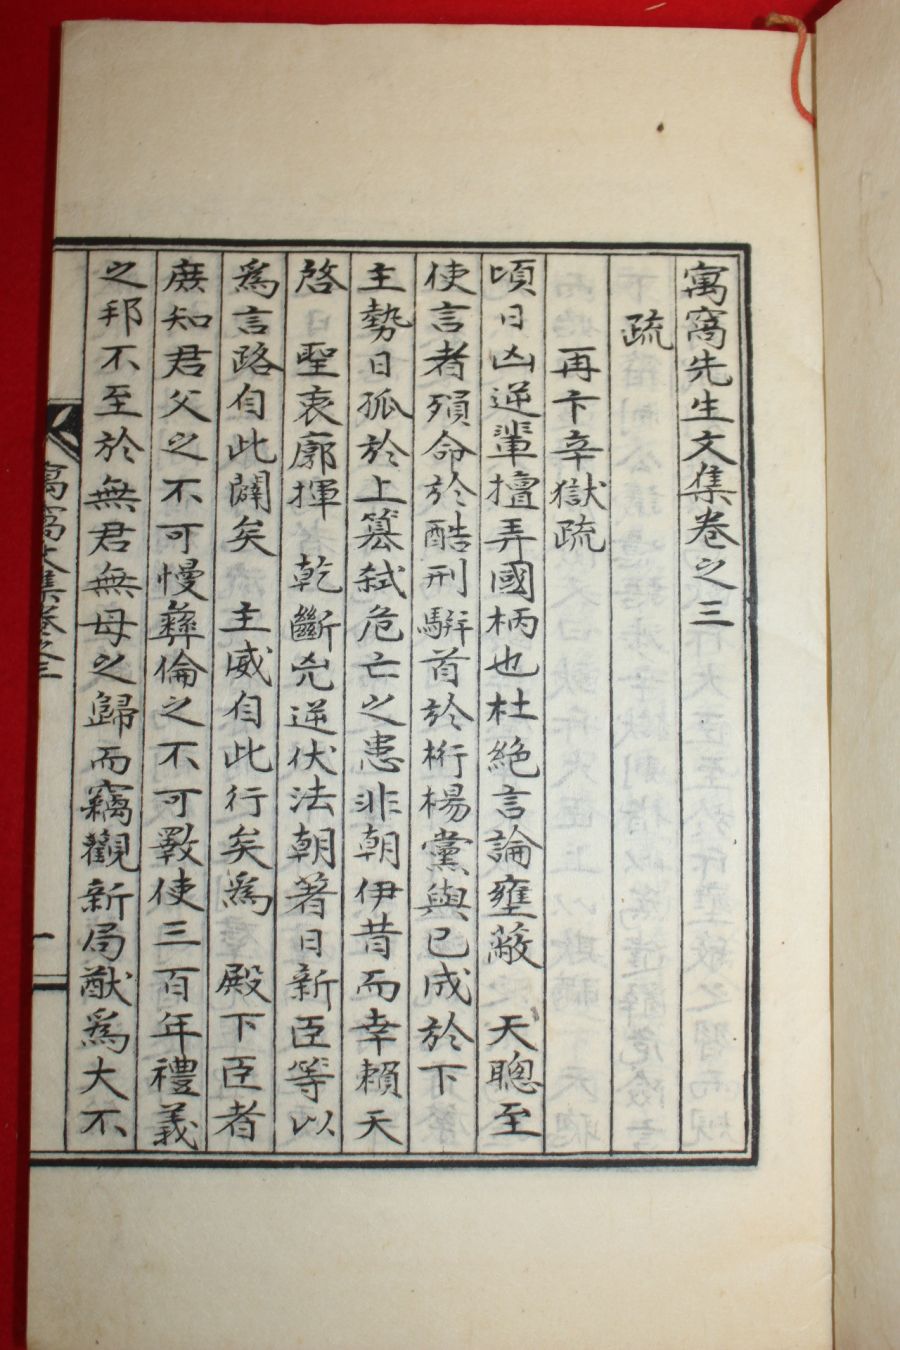 寓窩先生文集卷之三
疏
再卞辛獄疏
頃日凶逆輩擅弄國柄也杜絶言論壅蔽 天聰至
使言者殞命於酷刑騈首於桁楊黨與已成於下
主勢日孤於上簒弑危亡之患非朝伊昔而幸賴天
啓 聖衷廓揮 乾斷兇逆伏法朝著日新臣等以
爲言路自此闢矣 主威自此行矣爲 殿下臣者
庶知君父之不可慢彝倫之不可斁使三百年禮義
之邦不至於無君無母之歸而竊觀新局猷爲大不
寓窩文集卷之三
一